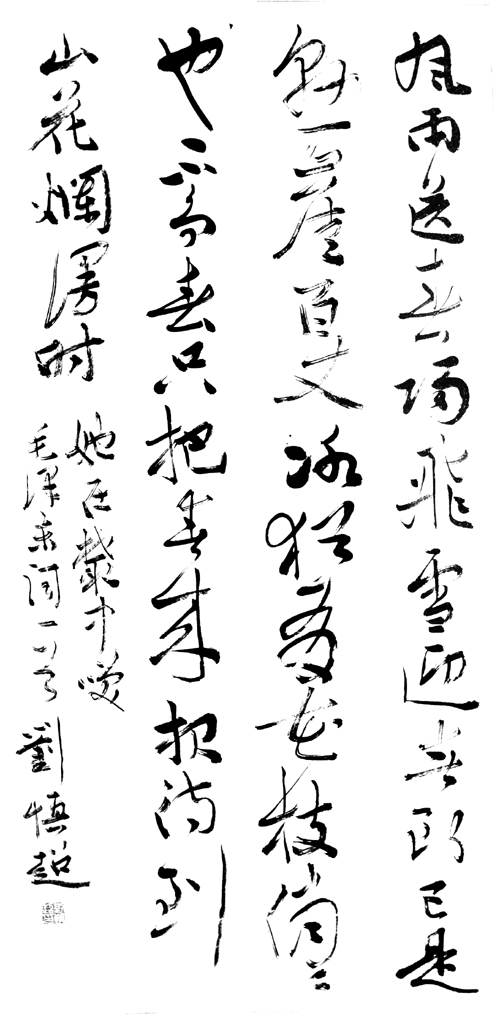 風雨送春歸飛雪迎春到已是
懸崖百丈冰猶有花枝俏〻
也不爭春只把春來報待到
山花爛漫時
她在叢中笑
毛澤東詞一首
劉慎超